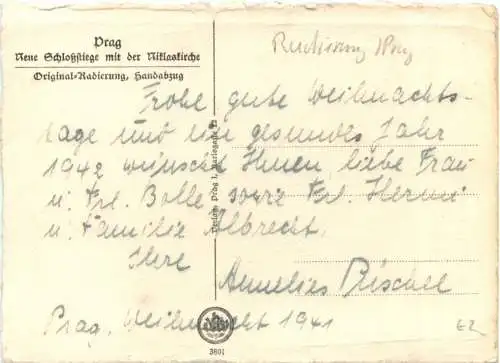 Prag
Neue Schloßstiege mit der Niklaskirche
Original-Radierung, Handabzug
Radierung Prag
Frohe gute Weihnachts-
tage und ein gesundes Jahr
1942 wünscht Ihnen, liebe Frau
u. Frl. Bolle sowie Frl. Hermi
u. Familie Albrecht.
Ihre
Annelies Rischel
Prag, Weihnacht 1941
Prag I, Karlsgasse
3801
EZ